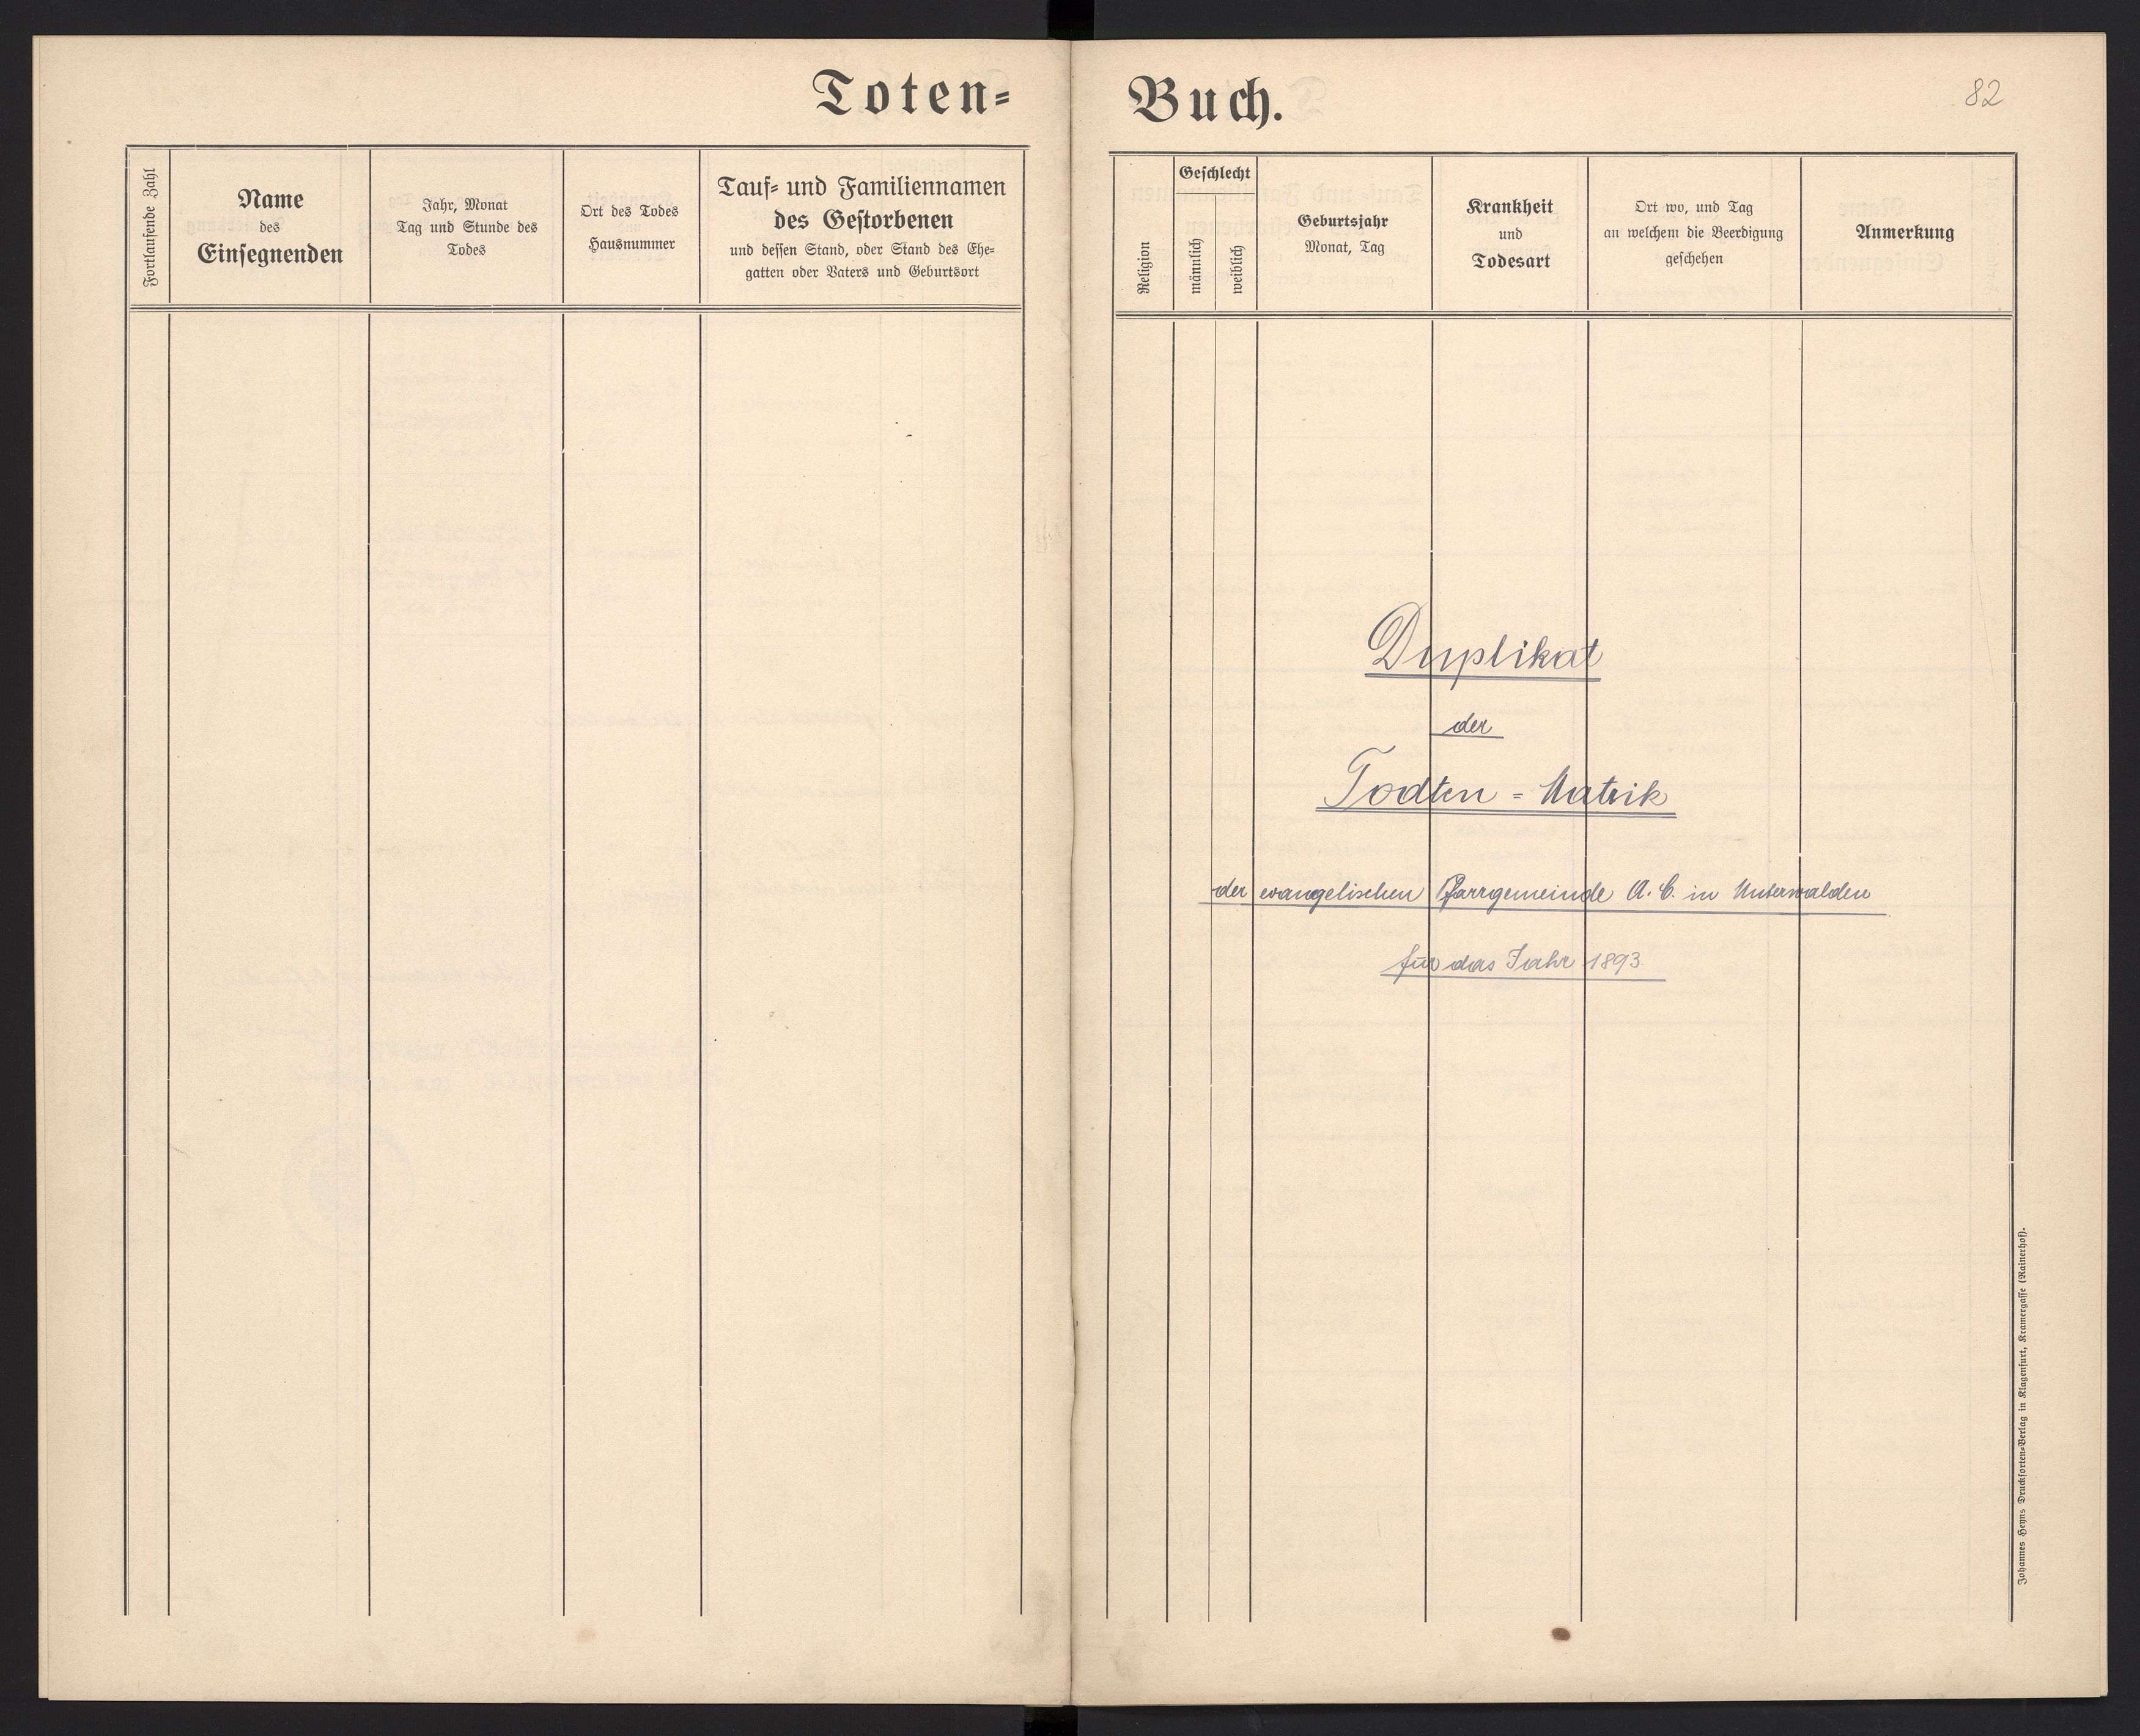 Toten=
Buch.
82
Fortlaufende Zahl
Name
des
Einsegnenden
Jahr, Monat
Tag und Stunde des
Todes
Ort des Todes
Hausnummer
Tauf= und Familiennamen
des Gestorbenen
und dessen Stand, oder Stand des Ehe=
gatten oder Vaters und Geburtsort
Religion
Geschlecht
männlich
weiblich
Geburtsjahr
Monat, Tag
Krankheit
und
Todesart
Ort wo, und Tag
an welchem die Beerdigung
geschehen
Anmerkung
Duplikat
der
Todten = Matrik
der evangelischen Pfarrgemeinde A. C. in Unterwalden
für das Jahr 1893.
Johannes Heyns Drucksorten=Verlag in Klagenfurt, Kramergasse (Rainerhof).